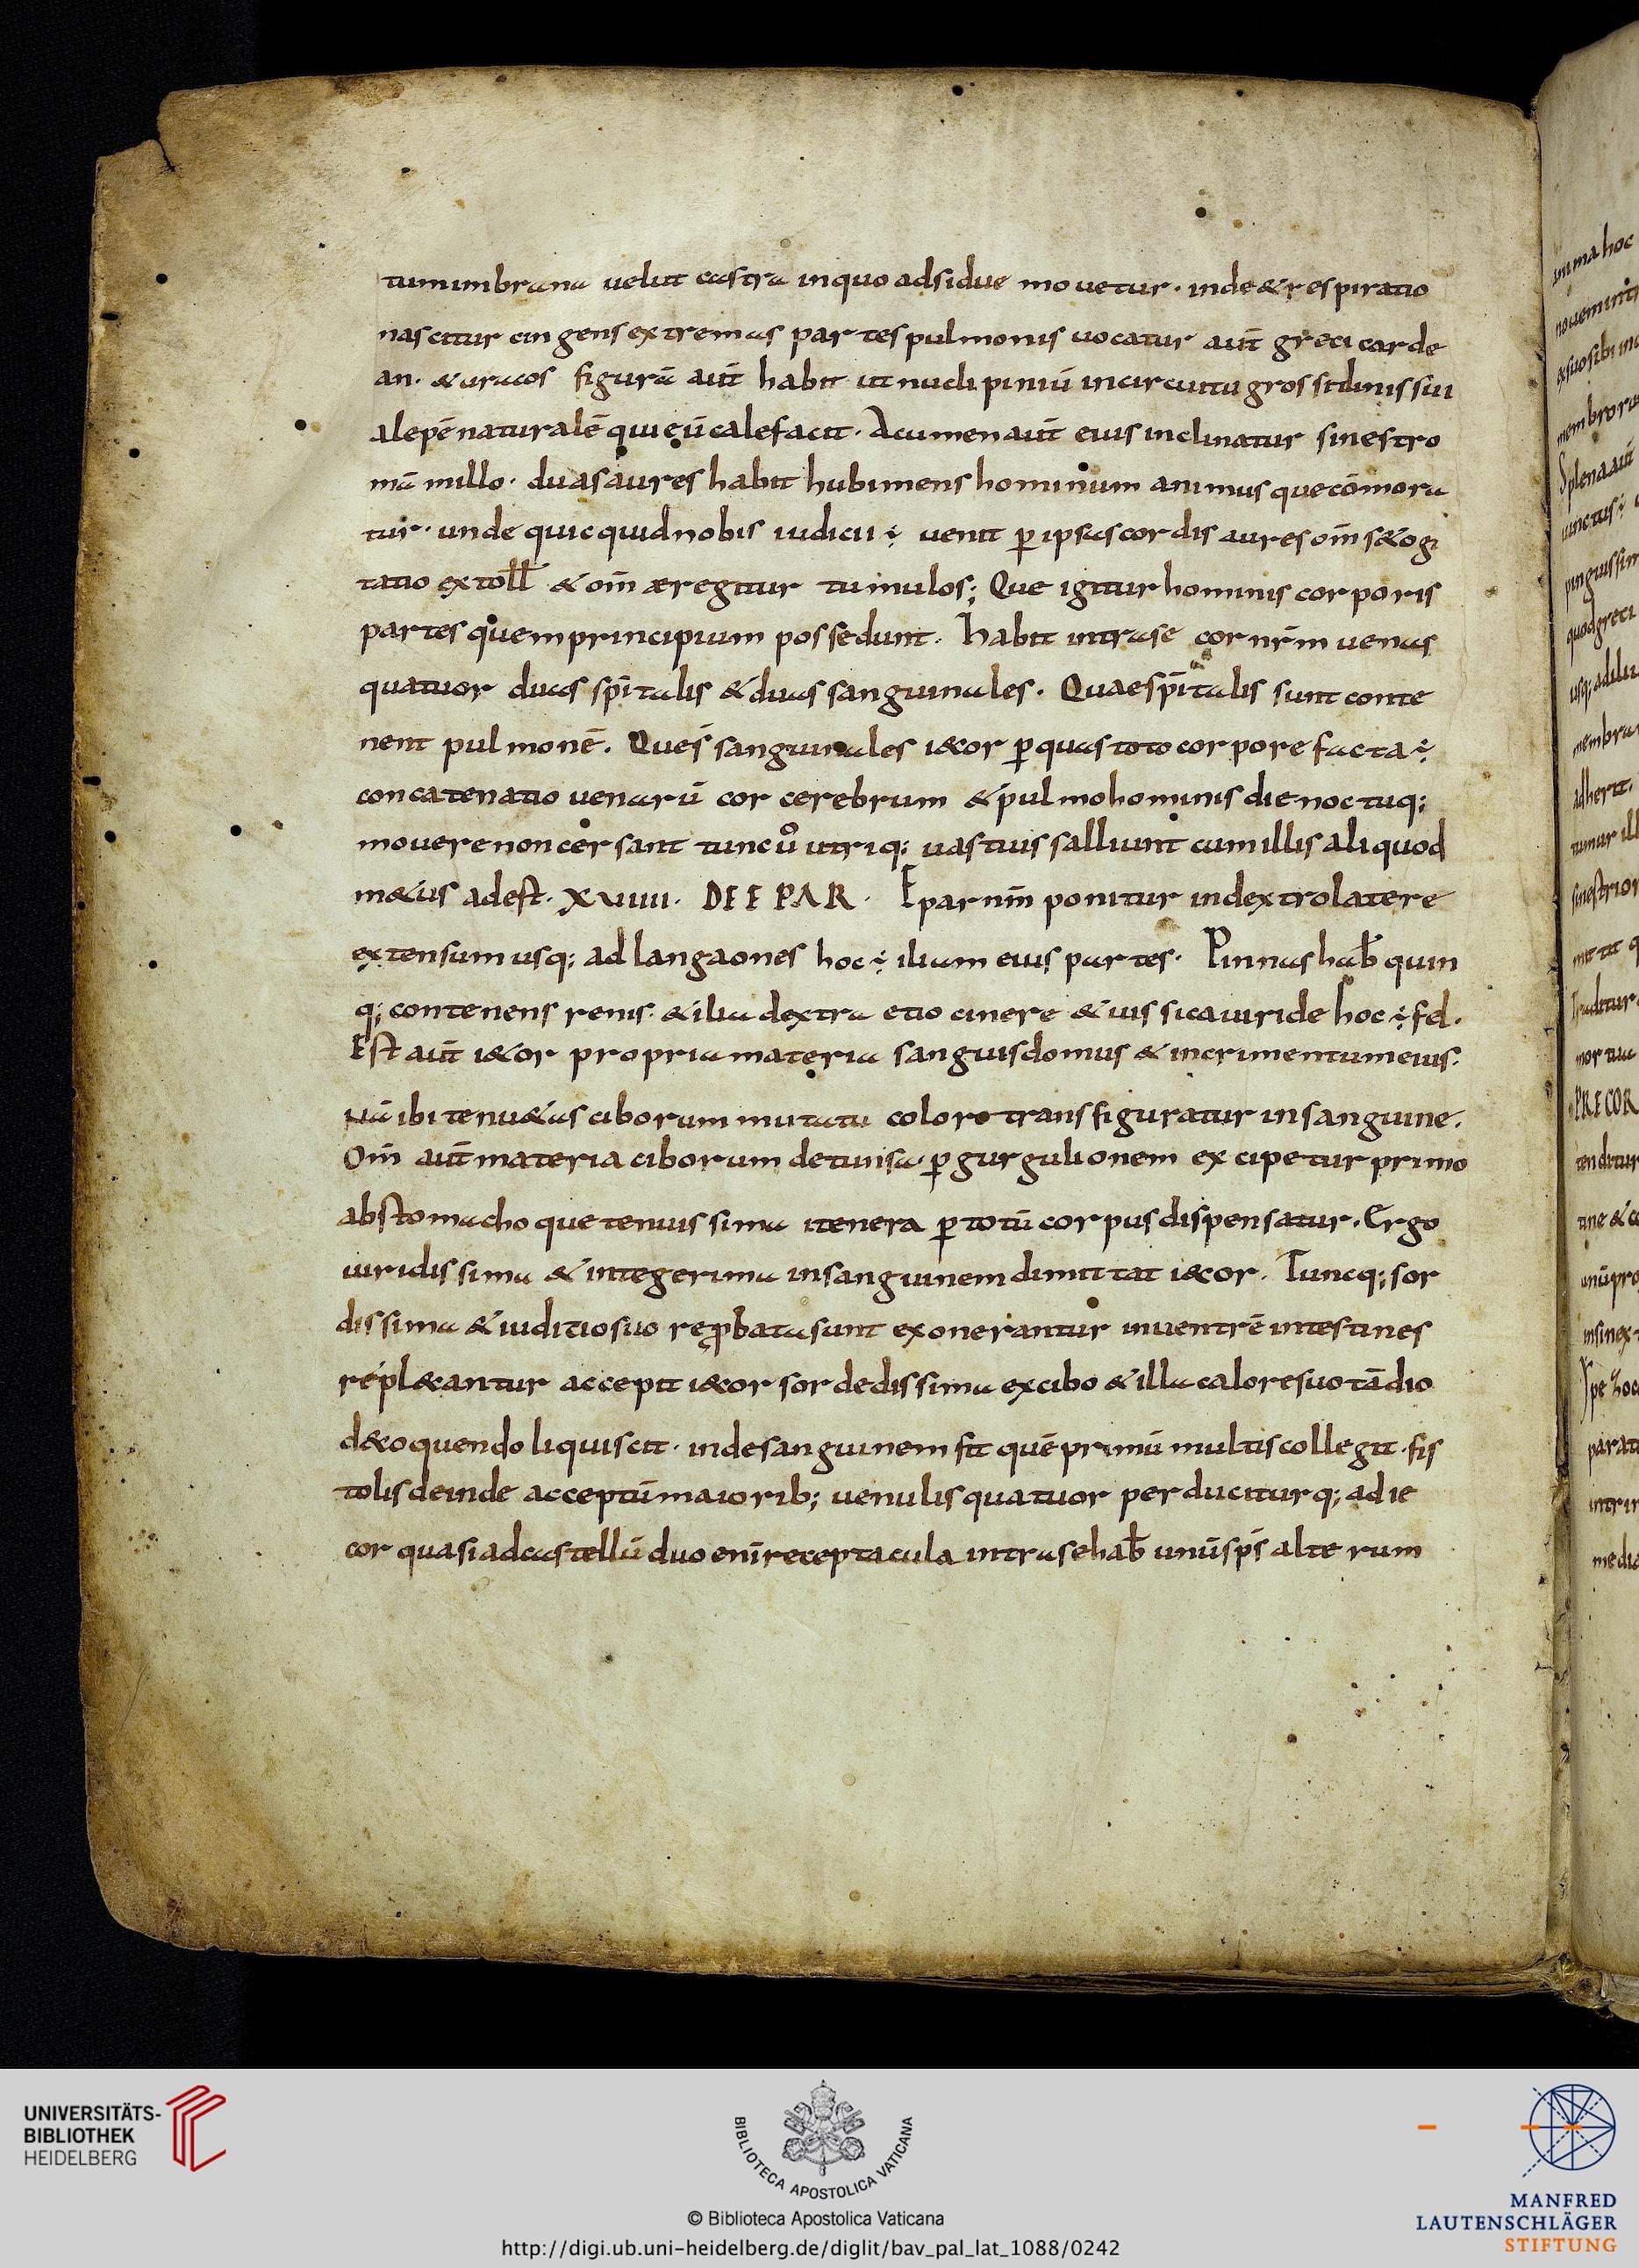 tumimbrana velut castra inquo adsidue movetur · inde & respiratio
nascitur cingens extremas partes pulmonis vocatur aut̄ greci carde
an · & uracos figurā aut̄ habit ut nucli piniū incircuitu grossitdinis sui
alepē naturalē qui eū calefacit · Acumen aut̄ eius inclinatur sinestro
mā millo · duas aures habit hubi mens hominum animus que cōmora
tur · unde quicquid nobis iudicii ÷ venit ꝑ ipsas cordis aures om̄s &ogi
tatio extoll̄ & om̄ æregitur tumulos; Que igitur hominis corporis
partes quem principium possedunt · Habit intrase cor nr̄m venas
quatuor duas sp̄italis & duas sanguinales · Quae sp̄italis sunt conte
nent pulmonē · Ques sanguinales i&cor ꝑ quas toto corpore facta ÷
concatenatio venarū cor cerebrum & pulmo hominis die noctuq;
movere non cersant tunc ů utriq; uastuis salliunt cum illis aliquod
m&us adest · XVIIII · DE EPAR · Epar nr̄m ponitur in dextro latere
extensum usq; ad langaones hoc ÷ ilium eius partes · Pinnas hab̄ quin
q; contenens renis · & ilia dextra etio cinere & uissica uiride hoc ÷ fel ·
Est aut̄ i&cor propria materia sanguis domus & incrimentum eius ·
Nā ibi tenu&as ciborum mutatu colore transfiguratur in sanguine ·
Om̄ aut̄ materia ciborum detunsa · ꝑ gurgulionem excipetur primo
ab stomacho que tenuissima itenera ꝑ totū corpus dispensatur · Ergo
uiridissima & integerima in sanguinem dimittat i&cor · Tuncq; sor
dissima & iuditio suo reꝓbata sunt exonerantur inuentrē intestines
repl&antur accepit i&cor sordedissima ex cibo & illa calore suo tādio
d&oquendo liquiscit · inde sanguinem fit quē primū multis collegit · fis
tolis deinde acceptūmaiorib; venulis quatuor perduciturq; ad ie
cor quasi ad castellū duo enī receptacula intrase hab̄ unū sp̄s alterum
UNIVERSITÄTS-
BIBLIOTHEK
HEIDELBERG
BIBLIOTECA APOSTOLICA VATICANA
© Biblioteca Apostolica Vaticana
http://digi.ub.uni-heidelberg.de/diglit/bav_pal_lat_1088/0242
MANFRED
LAUTENSCHLÄGER
STIFTUNG